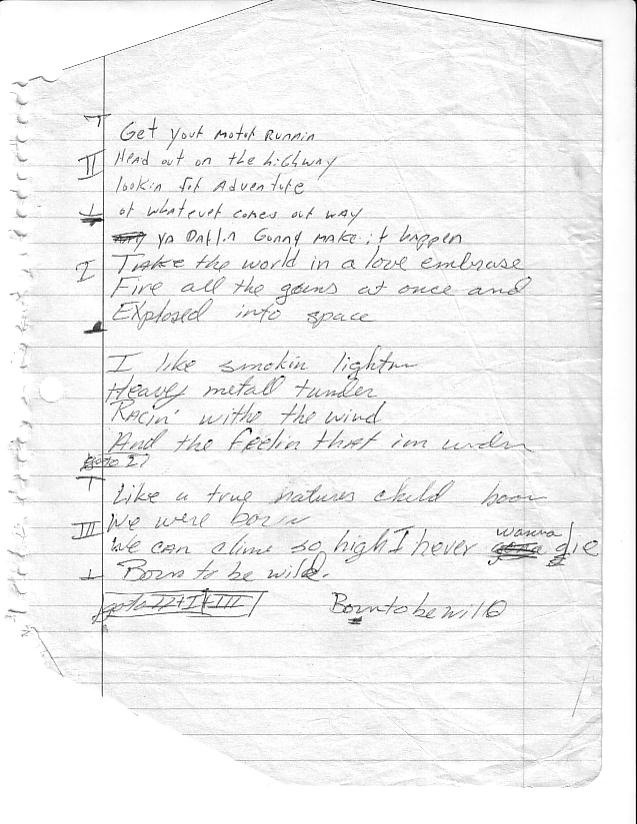 Get your motor Runnin
II Head out on the highway
lookin for Adventure
or whatever comes our way
ya Darlin Gonna make it happen
I Take the world in a love embrase
Fire all the guns at once and
Explosed into space
I like smokin lightnn
Heavey metall tunder
Racin' withe the wind
And the feelin that im undn
goto 2?
Like a true natures child born
III We were born
We can clime so high I never wanna die
Born to be wild.
goto II+I+III Born to be wild